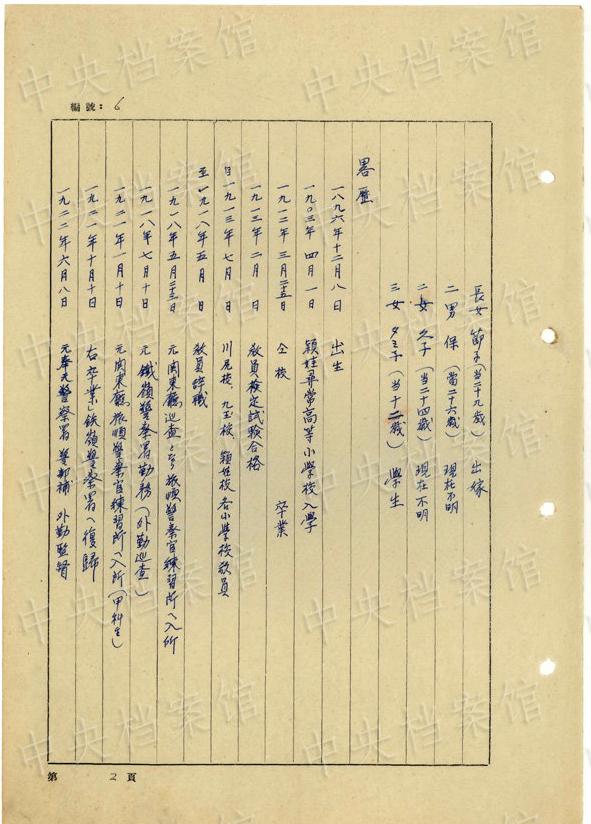 編號：6
長女 節子(当二十九歳) 出嫁
二男 保 (當二十六歳) 現在不明
二女 久子 (当二十四歳) 現在不明
三女 夕ミ子 (当十二歳) 学生
畧歴
一八九六年十二月八日 出生
一九〇三年四月一日 頴娃尋常高等小學校入学
一九一二年三月二十五日 仝校 卒業
一九一三年二月 日 教員検定試験合格
自一九一三年七月 日 川尻校、九玉校、頴娃校各小學校教員
至一九一八年五月 日 教員辞職
一九一八年五月二十三日 元関東廳巡査となり旅順警察官練習所へ入所
一九一八年七月十日 元鐵嶺警察署勤務(外勤巡査)
一九二一年一月十日 元関東廳旅順警察官練習所へ入所(甲科生)
一九二一年十月十日 右卒業し鉄嶺警察署へ復歸
一九二二年六月八日 元奉天警察署 警部補 外勤監督
第 2 頁
中央档案馆